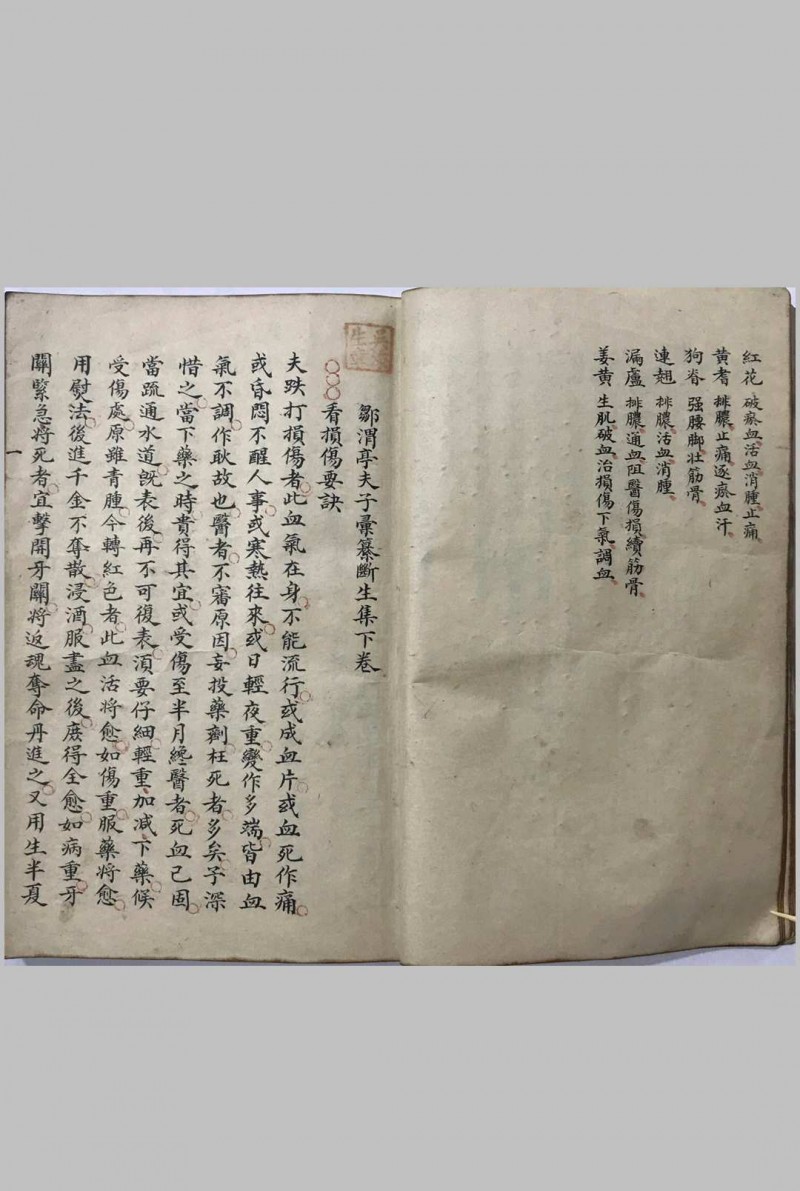 紅花 破瘀血活血消腫止痛
黃耆 排膿止痛逐瘀血汗
狗脊 强腰脚壯筋骨
連翹 排膿活血消腫
漏盧 排膿通血阻醫傷損續筋骨
姜黃 生肌破血治損傷下氣調血
鄒渭亭夫子彙纂斷生集下卷
○○○看損傷要訣
夫跌打損傷者此血氣在身不能流行或成血片或血死作痛
或昏悶不醒人事或寒熱往來或日輕夜重變作多端皆由血
氣不調作耿故也醫者不審原因妄投藥劑枉死者多矣予深
惜之當下藥之時貴得其宜或受傷至半月纔醫者死血已固
當疏通水道旣表後再不可復表湏要仔細輕重加减下藥候
受傷處原雖青腫今轉紅色者此血活將愈如傷重服藥將愈
用熨法後進千金不奪散浸酒服盡之後庻得全愈如病重牙
關緊急將死者宜擊開牙關將返魂奪命丹進之又用生半夏
一